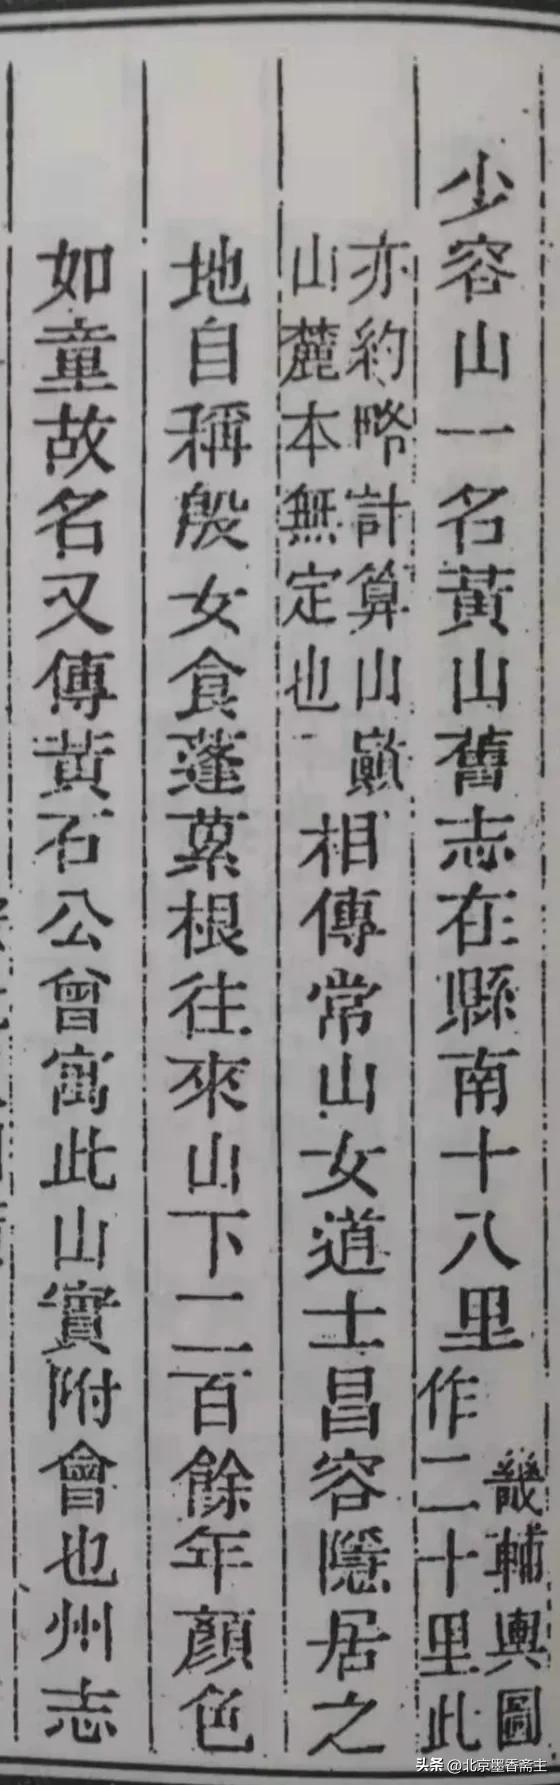 少容山一名黃山舊志在縣南十八里畿輔輿圖作二十里此
亦約略計算山巔山麓本無定也相傳常山女道士昌容隱居之
地自稱殷女食蓬蔂根往來山下二百餘年顏色
如童故名又傳黃石公曾寓此山實附會也州志
头条 @北京墨香斋主